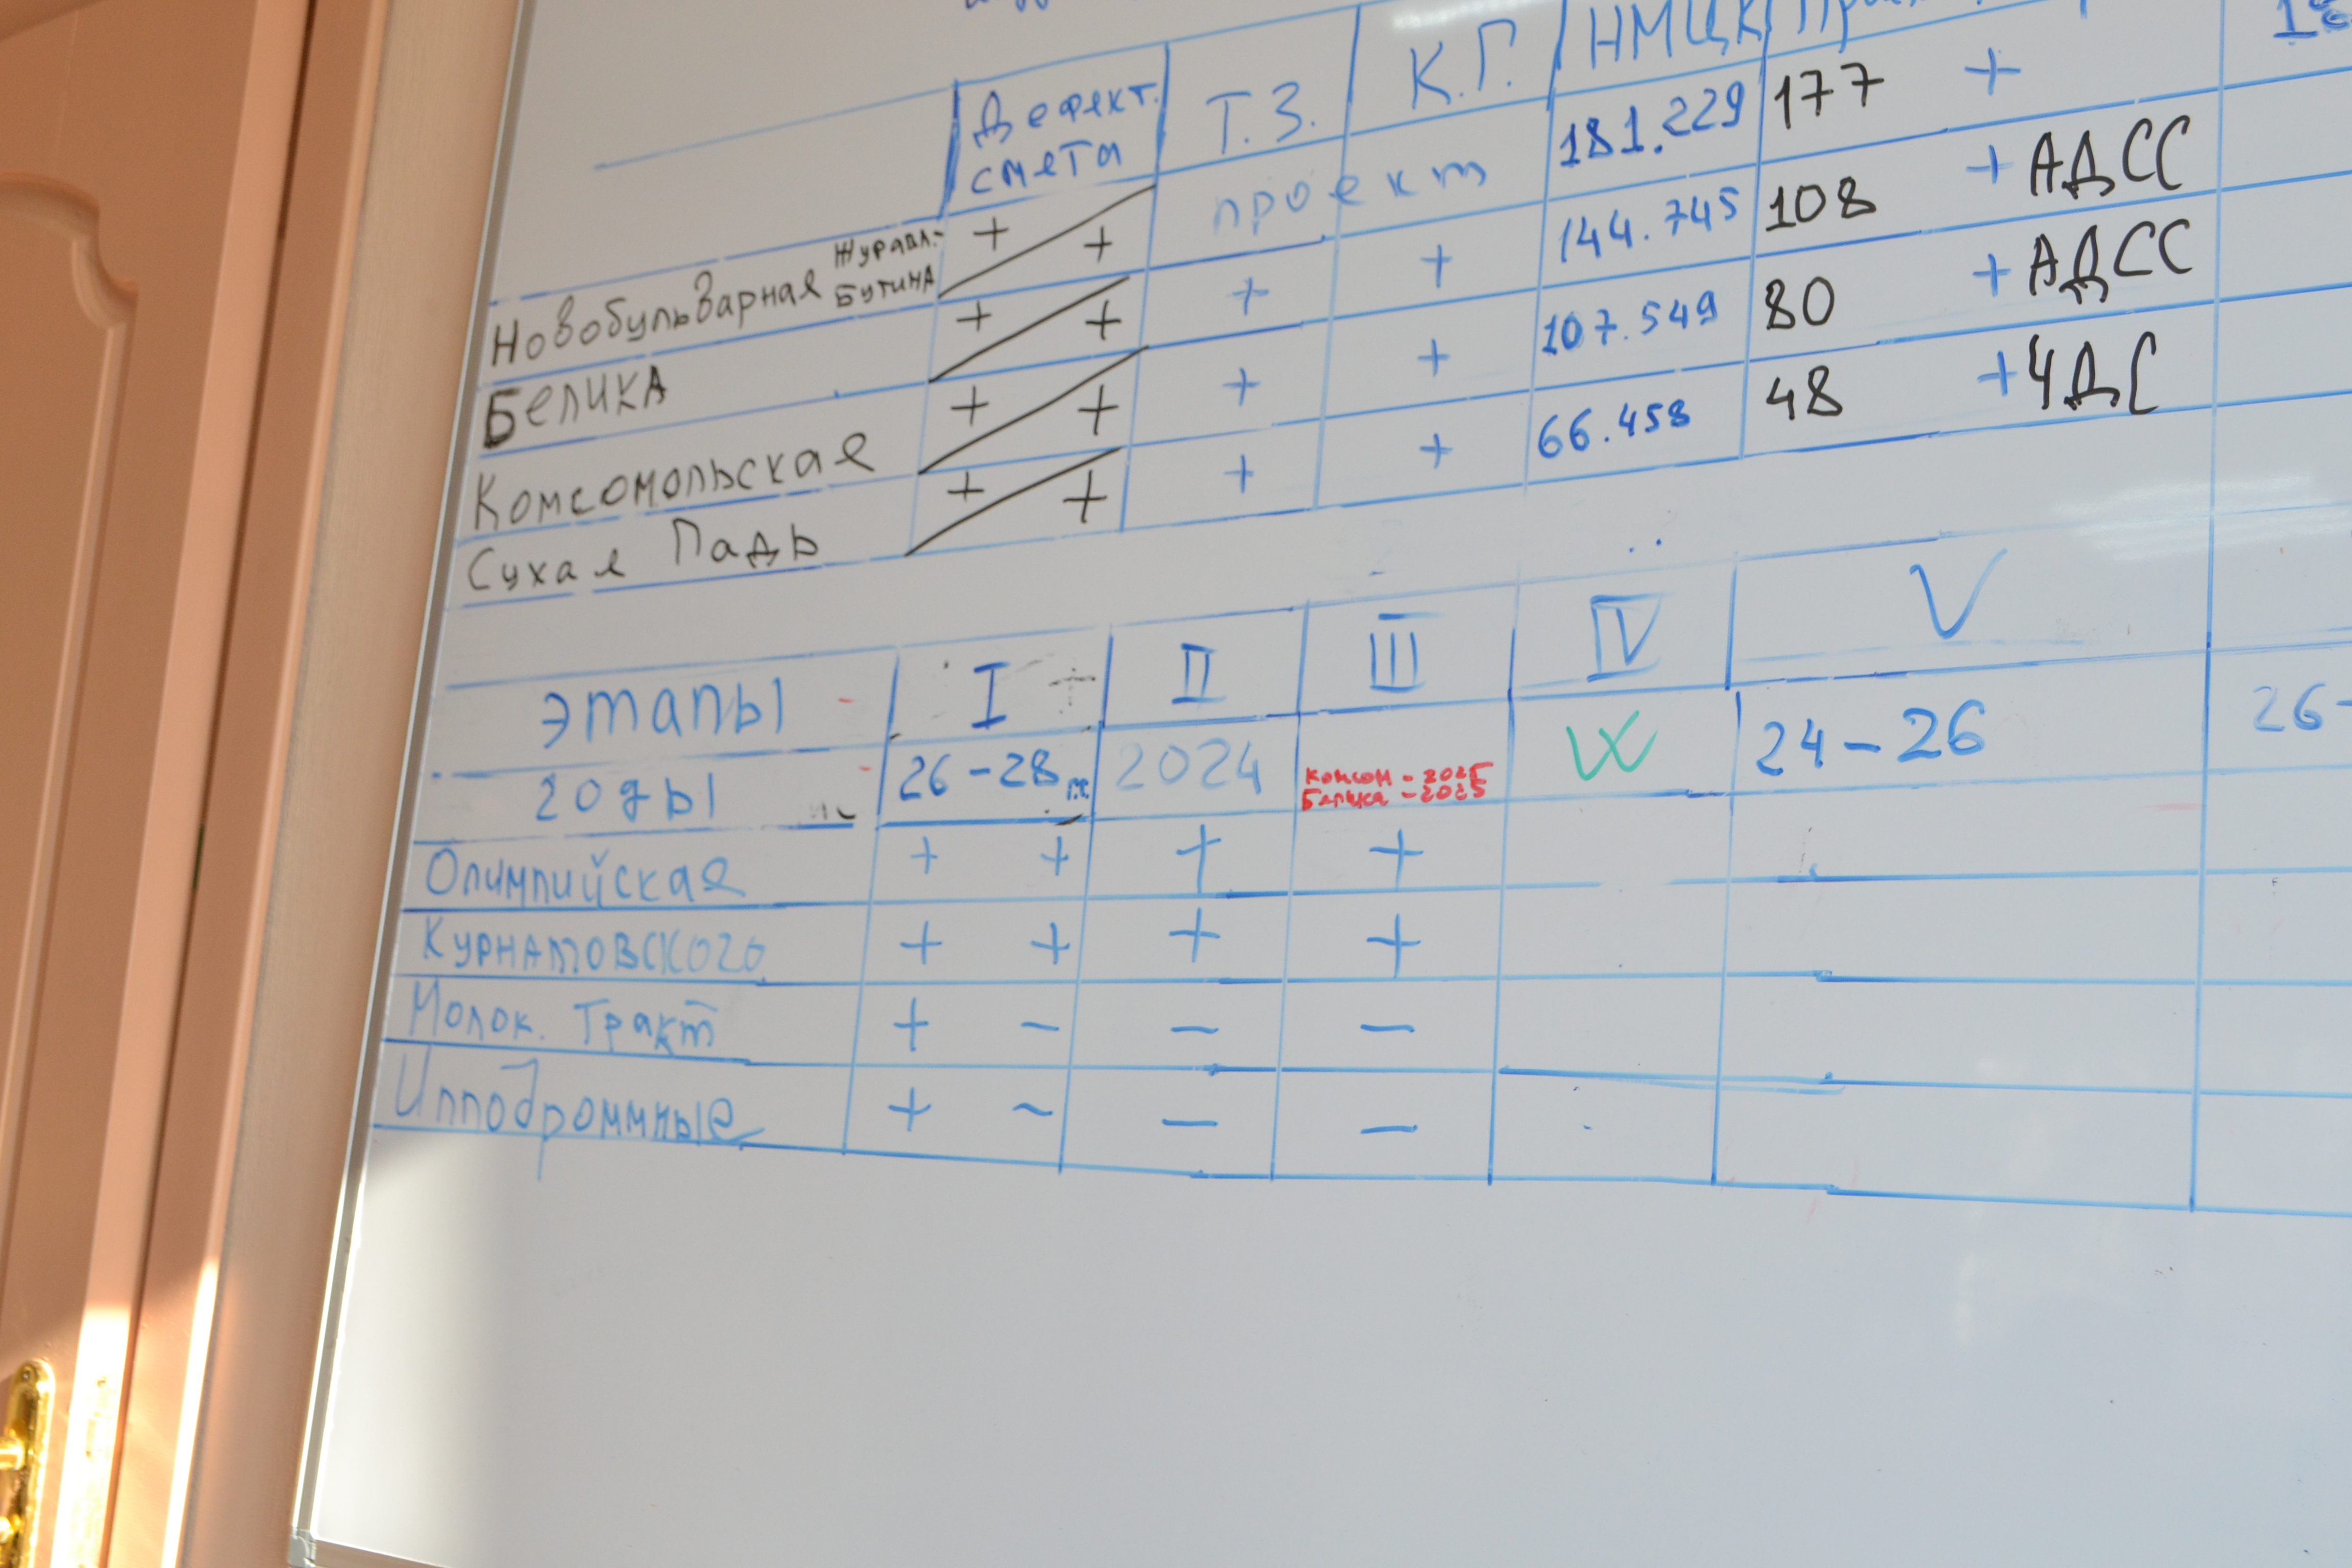 Дефект. смета Т.З. К.Г. НМЦК
Новобульварная Журавл.- Бутина + + проект 181.229 177 +
Белика + + + + 144.745 108 + АДСС
Комсомольская + + + + 107.549 80 + АДСС
Сухая Падь + + + + 66.458 48 + ЧДС
этапы I II III IV V
годы 26-28 2024 Комсом - 2025 24-26 26-
Белика - 2025
Олимпийская + + + +
Курнатовского + + + +
Молок. Тракт + - - -
Ипподромные + ~ - -